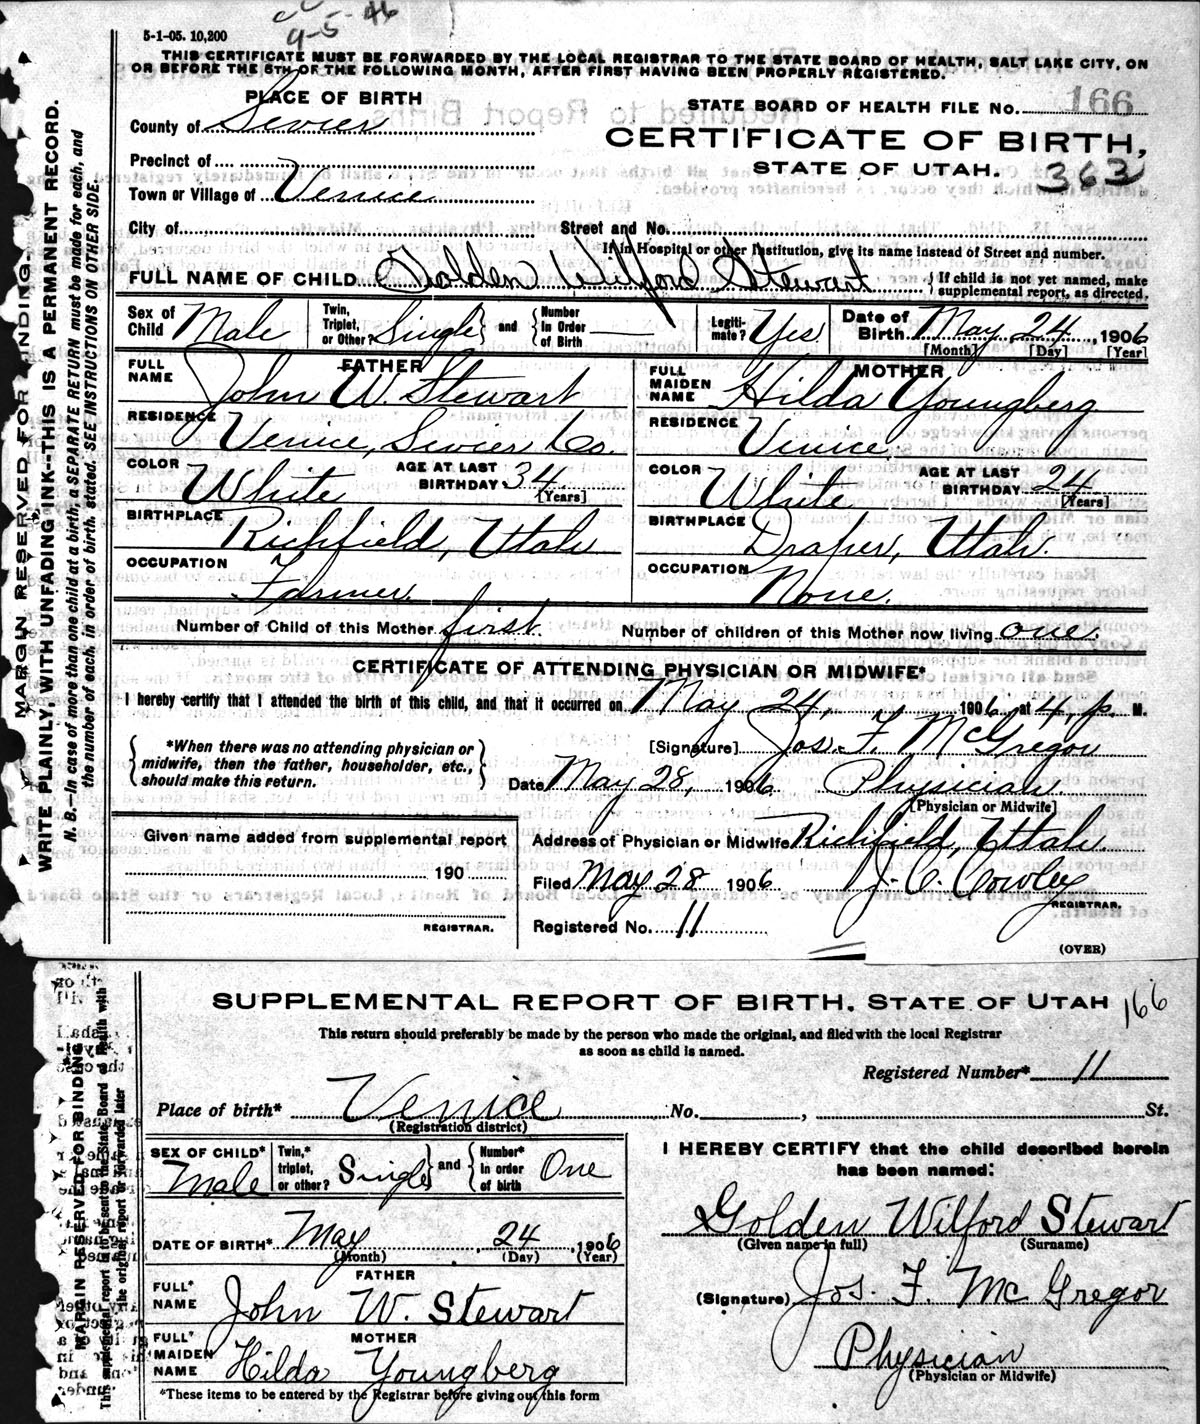 9-5-46
5-1-05. 10,200
THIS CERTIFICATE MUST BE FORWARDED BY THE LOCAL REGISTRAR TO THE STATE BOARD OF HEALTH, SALT LAKE CITY, ON
OR BEFORE THE 5TH OF THE FOLLOWING MONTH, AFTER FIRST HAVING BEEN PROPERLY REGISTERED.
PLACE OF BIRTH
STATE BOARD OF HEALTH FILE No. 166
County of Sevier
CERTIFICATE OF BIRTH,
Precinct of
STATE OF UTAH. 363
Town or Village of Venice
City of Street and No.
If in Hospital or other Institution, give its name instead of Street and number.
FULL NAME OF CHILD Golden Wilford Stewart { If child is not yet named, make supplemental report, as directed.
Sex of Child Male Twin, Triplet, or Other? Single } and { Number In Order of Birth — Legiti- mate? Yes Date of Birth May 24, 1906
[Month] [Day] [Year]
FATHER MOTHER
FULL NAME John W. Stewart FULL MAIDEN NAME Hilda Youngberg
RESIDENCE Venice, Sevier Co. RESIDENCE Venice,
COLOR White AGE AT LAST BIRTHDAY 34 [Years] COLOR White AGE AT LAST BIRTHDAY 24 [Years]
BIRTHPLACE Richfield, Utah BIRTHPLACE Draper, Utah.
OCCUPATION Farmer. OCCUPATION None.
Number of Child of this Mother first. Number of children of this Mother now living one.
CERTIFICATE OF ATTENDING PHYSICIAN OR MIDWIFE*
I hereby certify that I attended the birth of this child, and that it occurred on May 24, 1906 at 4, p. M.
{ *When there was no attending physician or midwife, then the father, householder, etc., should make this return. }
[Signature] Jos. F. McGregor
Date May 28, 1906 Physician.
[Physician or Midwife]
Given name added from supplemental report
Address of Physician or Midwife Richfield, Utah.
190
Filed May 28 1906 J. C. Cowley
REGISTRAR.
REGISTRAR.
Registered No. 11
(OVER)
MARGIN RESERVED FOR BINDING.
WRITE PLAINLY, WITH UNFADING INK--THIS IS A PERMANENT RECORD.
N. B.—In case of more than one child at a birth, a SEPARATE RETURN must be made for each, and
the number of each, in order of birth, stated. SEE INSTRUCTIONS ON OTHER SIDE.
SUPPLEMENTAL REPORT OF BIRTH, STATE OF UTAH 166
This return should preferably be made by the person who made the original, and filed with the local Registrar
as soon as child is named.
Registered Number* 11
Place of birth* Venice No. , St.
(Registration district)
SEX OF CHILD* Male Twin,* triplet, or other? Single } and { Number* in order of birth One
DATE OF BIRTH* May 24, 1906
(Month) (Day) (Year)
FATHER
FULL* NAME John W. Stewart
MOTHER
FULL* MAIDEN NAME Hilda Youngberg
*These items to be entered by the Registrar before giving out this form
I HEREBY CERTIFY that the child described herein
has been named:
Golden Wilford Stewart
(Given name in full) (Surname)
(Signature) Jos. F. Mc Gregor
Physician
(Physician or Midwife)
MARGIN RESERVED FOR BINDING
This supplemental report to be sent to the State Board of Health with
the original report or forwarded later